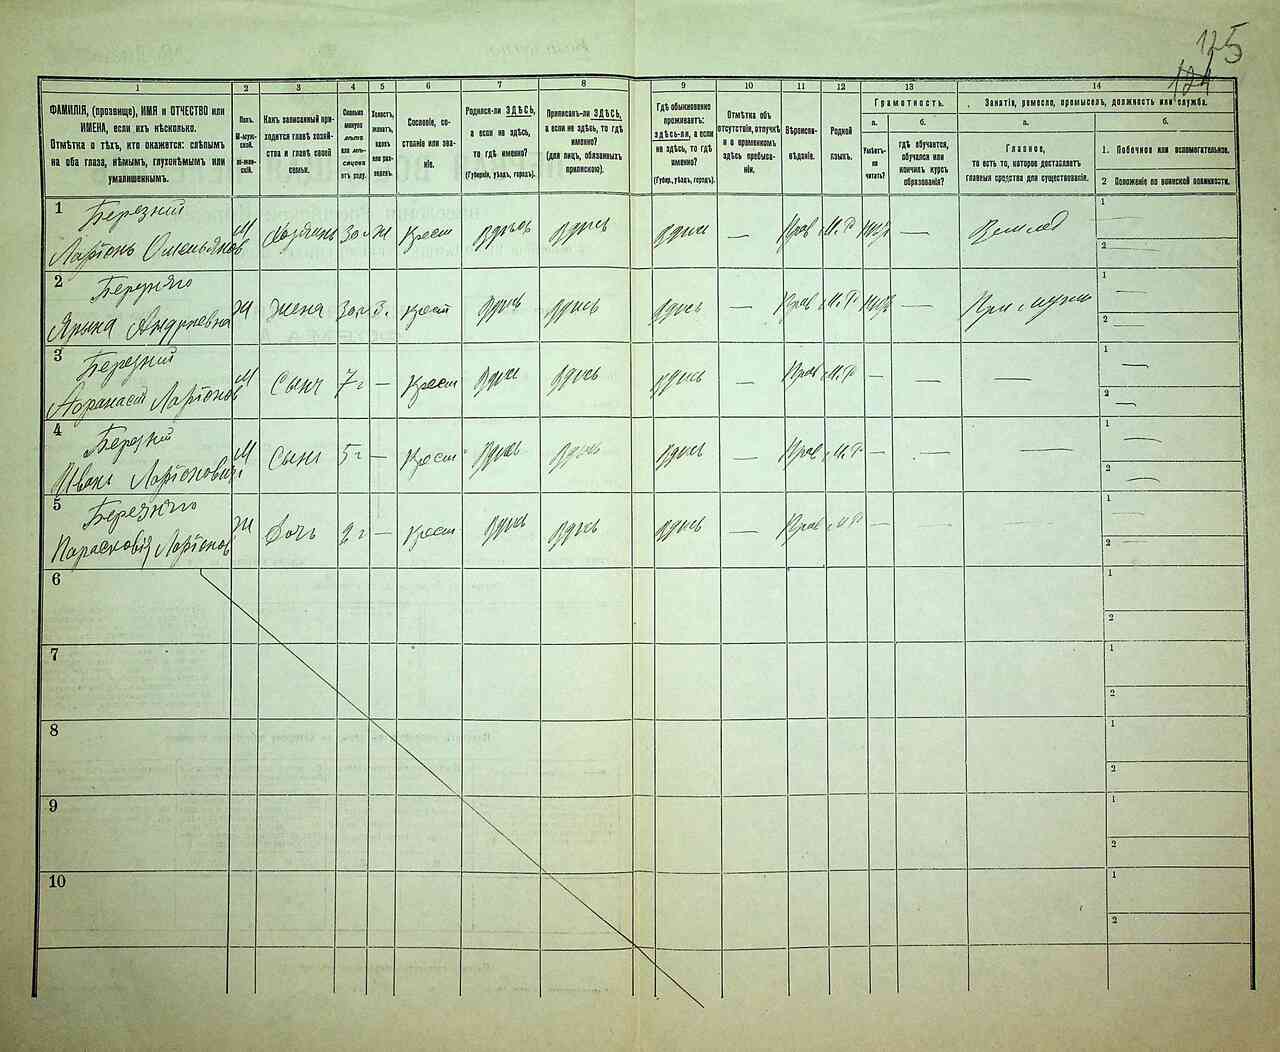 125
124
1 2 3 4 5 6 7 8 9 10 11 12 13 14
ФАМИЛІЯ, (прозвище), ИМЯ и ОТЧЕСТВО или
ИМЕНА, если ихъ нѣсколько.
Отмѣтка о тѣхъ, кто окажется: слѣпымъ
на оба глаза, нѣмымъ, глухонѣмымъ или
умалишеннымъ.
Полъ.
М-муж-
ской.
ж-жен-
скій.
Какъ записанный при-
ходится главѣ хозяй-
ства и главѣ своей
семьи.
Сколько
минуло
лѣтъ
или мѣ-
сяцевъ
отъ роду.
Холостъ,
женатъ,
вдовъ
или раз-
веденъ.
Сословіе, со-
стояніе или зва-
ніе.
Родился-ли ЗДѢСЬ,
а если не здѣсь,
то гдѣ именно?
(Губернія, уѣздъ, городъ).
Приписанъ-ли ЗДѢСЬ,
а если не здѣсь, то гдѣ
именно?
(для лицъ, обязанныхъ
припискою).
Гдѣ обыкновенно
проживаетъ:
здѣсь-ли, а если
не здѣсь, то гдѣ
именно?
(Губер, уѣздъ, городъ).
Отмѣтка объ
отсутствіи, отлучкѣ
и о временномъ
здѣсь пребыва-
ніи.
Вѣроиспо-
вѣданіе.
Родной
языкъ.
Грамотность.
а.
Умѣетъ-
ли
читать?
б.
гдѣ обучается,
обучался или
кончилъ курсъ
образованія?
Занятіе, ремесло, промыселъ, должность или служба.
а.
Главное,
то есть то, которое доставляетъ
главныя средства для существованія.
б.
1. Побочное или вспомогательное.
2 Положеніе по воинской повинности.
1 Березний
Ларіонъ Омельянов М Хозяинъ 30 л ж Крест здѣсь здѣсь здѣсь — Прав М.Р — Землед
1 —
2 —
2 Березняго
Ярына Андриевна Ж Жена 30 л З. Крест здѣсь здѣсь здѣсь — Прав М.Р. — При мужи
1 —
2 —
3 Березний
Афранаст Ларіонов М Сынъ 7 г — Крест здѣсь здѣсь здѣсь — Прав М.Р — — —
1 —
2 —
4 Березний
Иванъ Ларіонович М Сынъ 5 г — Крест здѣсь здѣсь здѣсь — Прав М.Р — — —
1 —
2 —
5 Березняго
Парасковія Ларіонов Ж Дочь 2 г — Крест здѣсь здѣсь здѣсь — Прав М.Р — — —
1 —
2 —
6 1
2
7 1
2
8 1
2
9 1
2
10 1
2